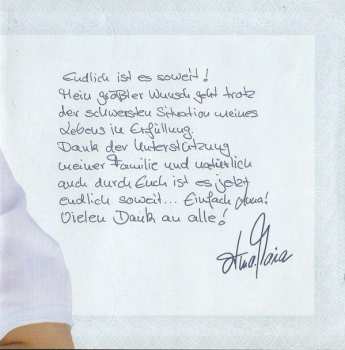 Endlich ist es soweit!
Mein größter Wunsch geht trotz
der schwersten Situation meines
Lebens in Erfüllung.
Dank der Unterstützung
meiner Familie und natürlich
auch durch Euch ist es jetzt
endlich soweit... Einfach Ana!
Vielen Dank an alle!